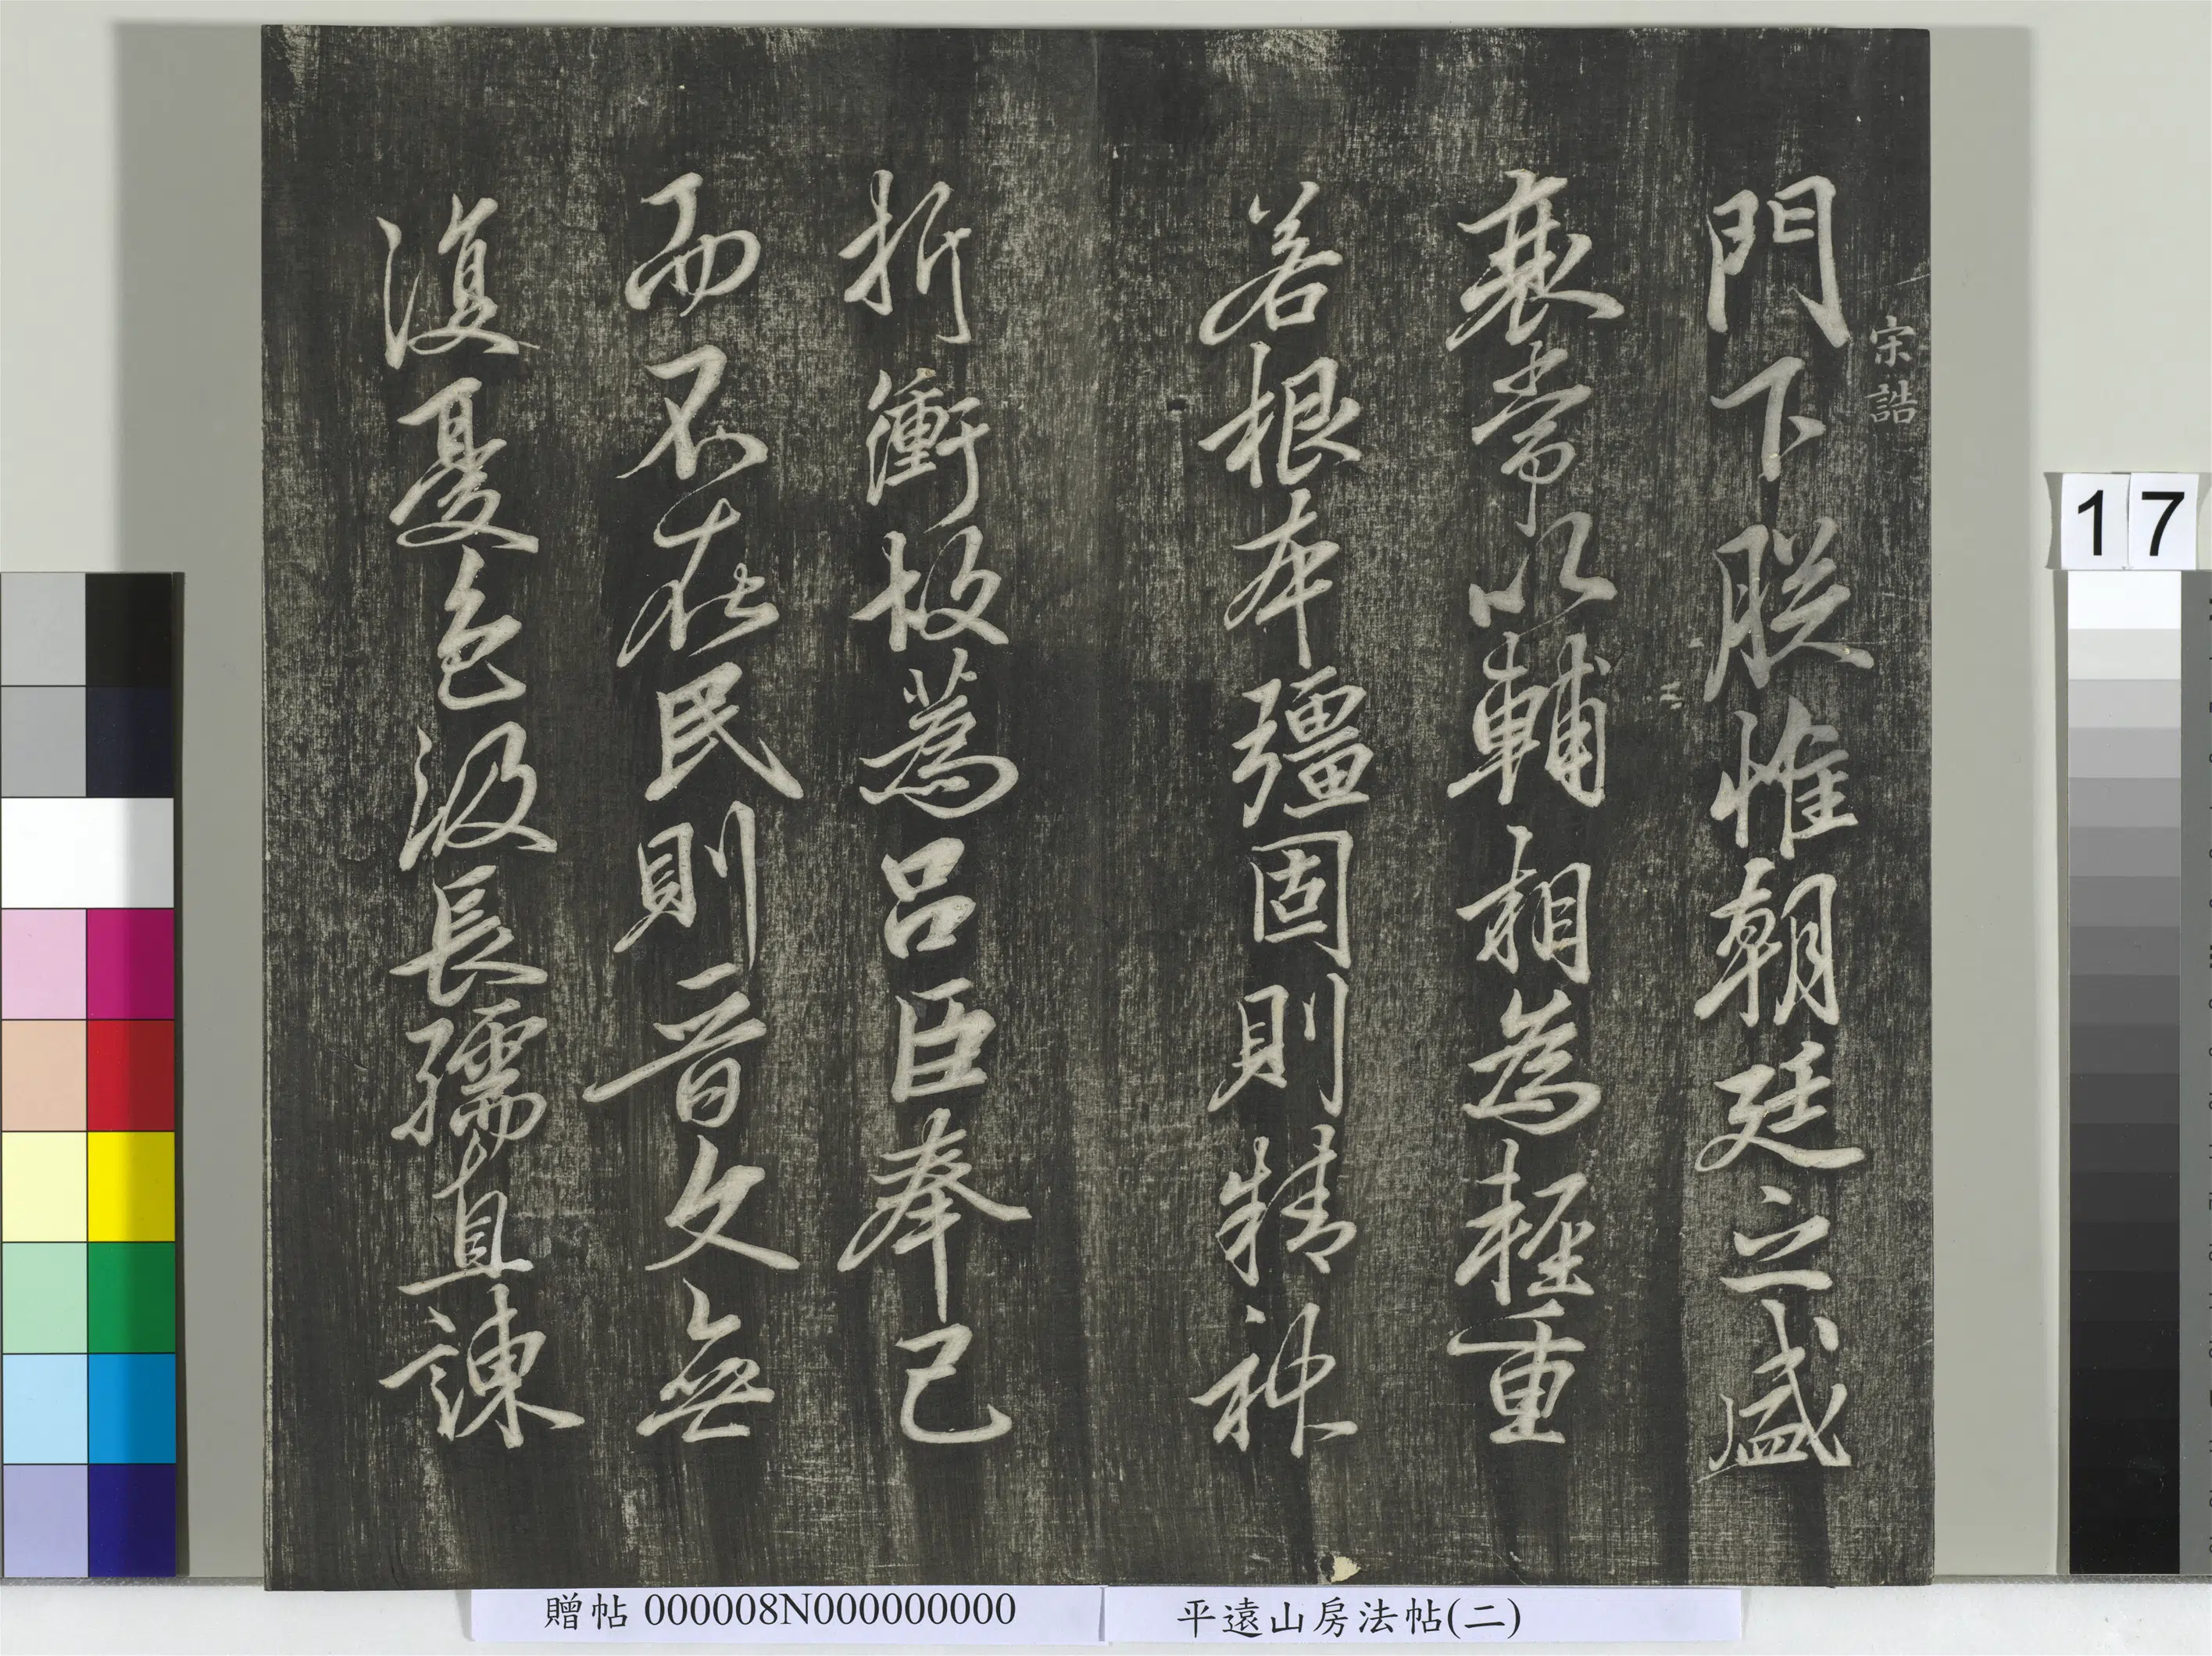 宋誥
門下朕惟朝廷之盛
衰常以輔相為輕重
若根本彊固則精神
折衝故蒍呂臣奉己
而不在民則晉文無
復憂色汲長孺直諫
17
贈帖 000008N000000000
平遠山房法帖(二)